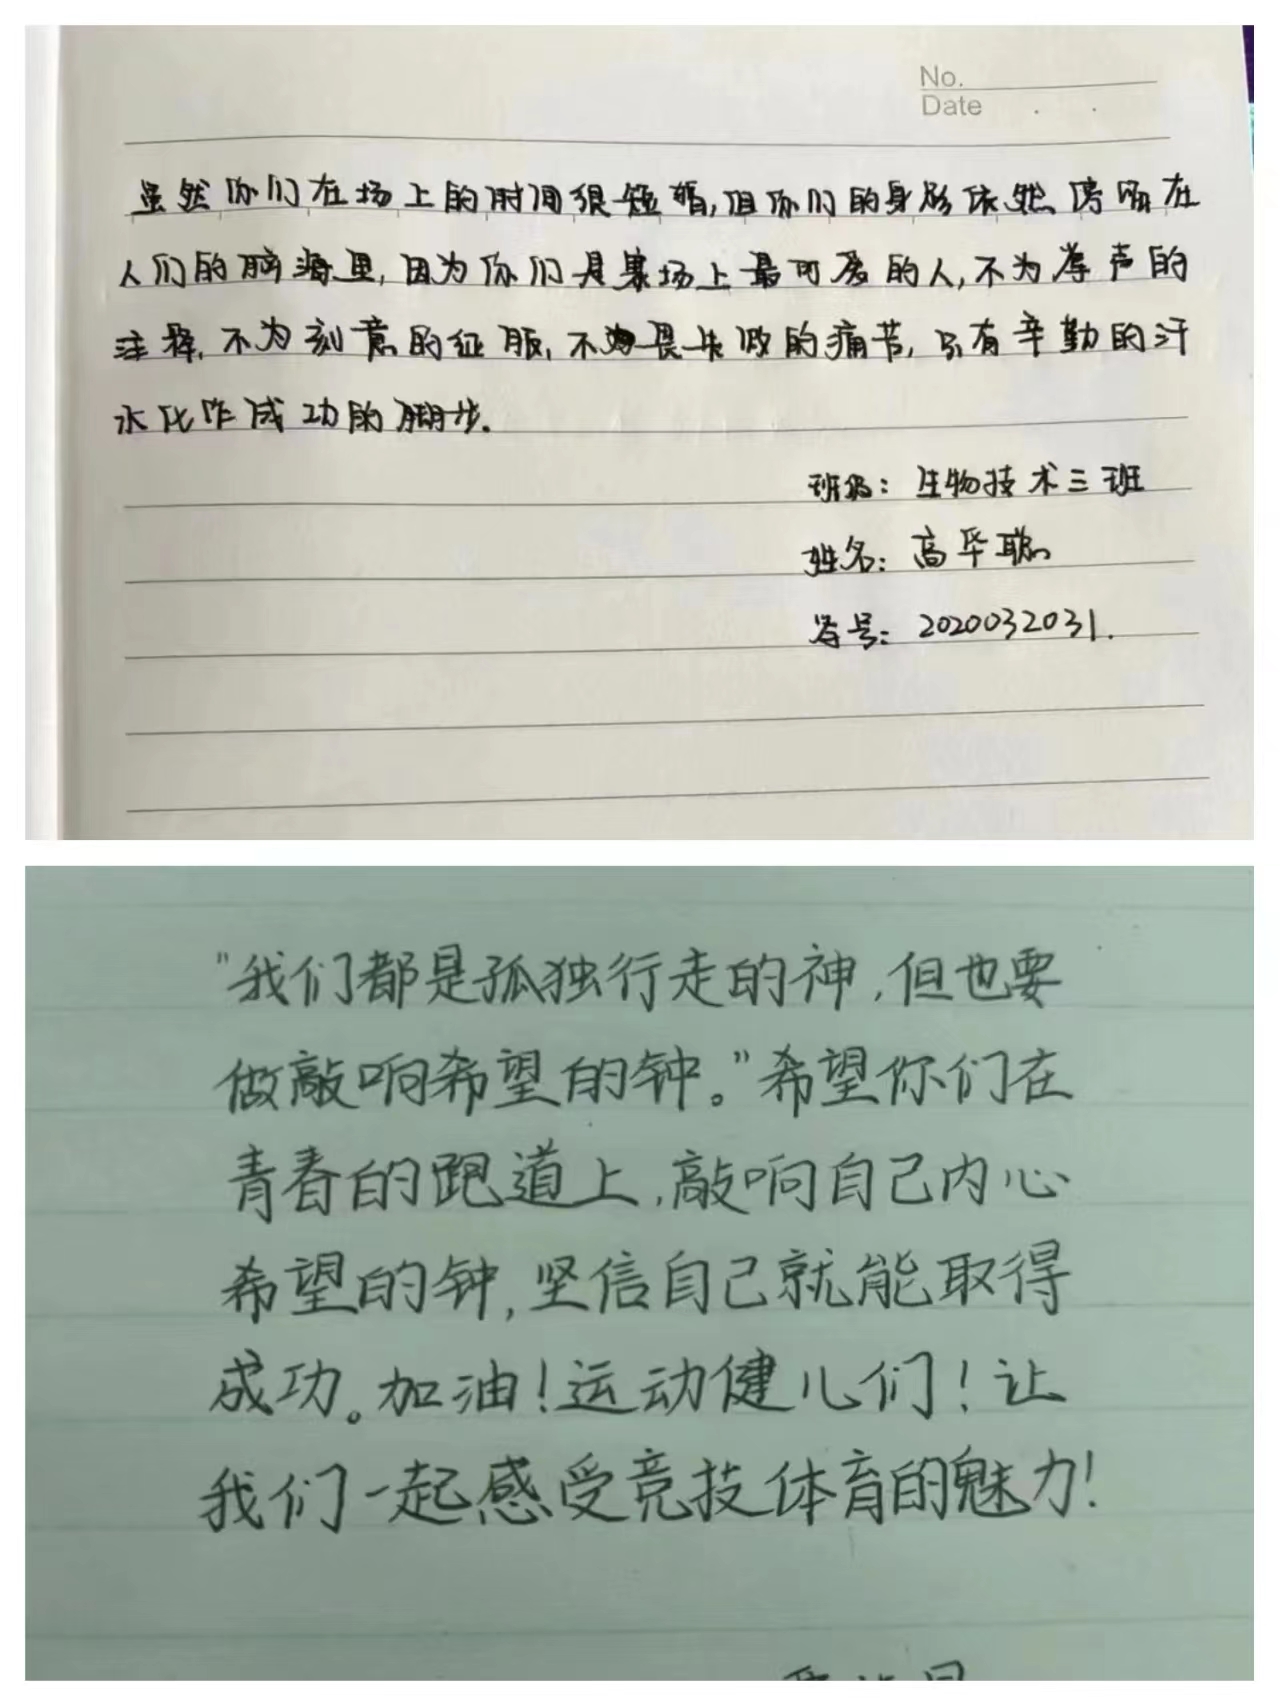 No.
Date
虽然你们在场上的时间很短暂,但你们的身影依然停留在
人们的脑海里,因为你们是赛场上最可爱的人,不为掌声的
注释,不为刻意的征服,不畏失败的痛苦,只有辛勤的汗
水化作成功的脚步.
班级: 生物技术三班
姓名: 高华聪
学号: 2020032031.
"我们都是孤独行走的神,但也要
做敲响希望的钟。"希望你们在
青春的跑道上,敲响自己内心
希望的钟,坚信自己就能取得
成功。加油!运动健儿们!让
我们一起感受竞技体育的魅力!